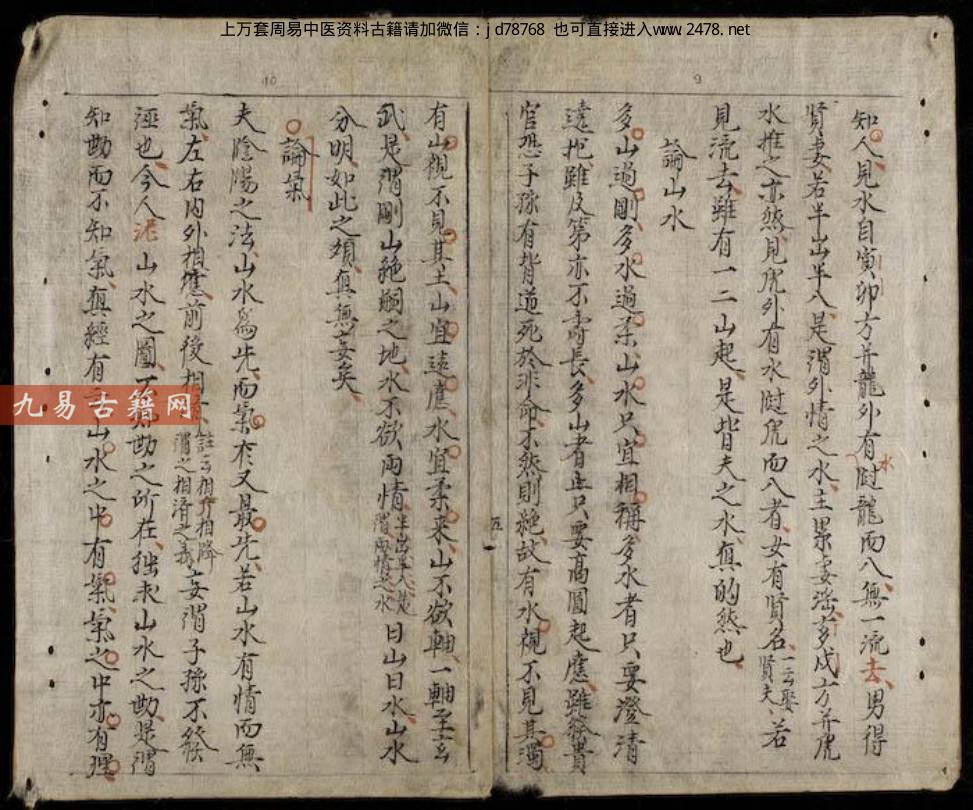 上万套周易中医资料古籍请加微信：jd78768 也可直接进入www.2478.net
9
知人見水自寅卯方并龍外有水㳠龍而入無一流去男得
賢妻若半出半入是謂外情之水主累妻淫多戌方并虎
水推之亦然見虎外有水㳠虎而入者女有賢名一云娶賢夫若
見流去雖有一二山起是皆夫之水真的然也
論山水
多山過剛多水過柔山水只宜相稱多水者只要澄清
遠抱雖及第亦不壽長多山者只要高圓起應雖發貴
官恐子孫有背道死於非命不然則絶故有水視不見其濁
五
10
有山視不見其主山宜遠應水宜柔來山不欲軸一軸至玄
武是謂剛山絶嗣之地水不欲兩情半出半入是謂兩情之水日山日水山水
分明如此之類真無妄矣
論氣
夫陰陽之法山水爲先而氣㐲又最先若山水有情而無
氣左右內外相應前後相註云相介相降謂之相濟之義妄謂子孫不發
誣也今人泥山水之圖不知勘之所在拙求山水之勘是謂
知勘而不知氣真經有山水之中有氣氣之中亦有理
九易古籍网